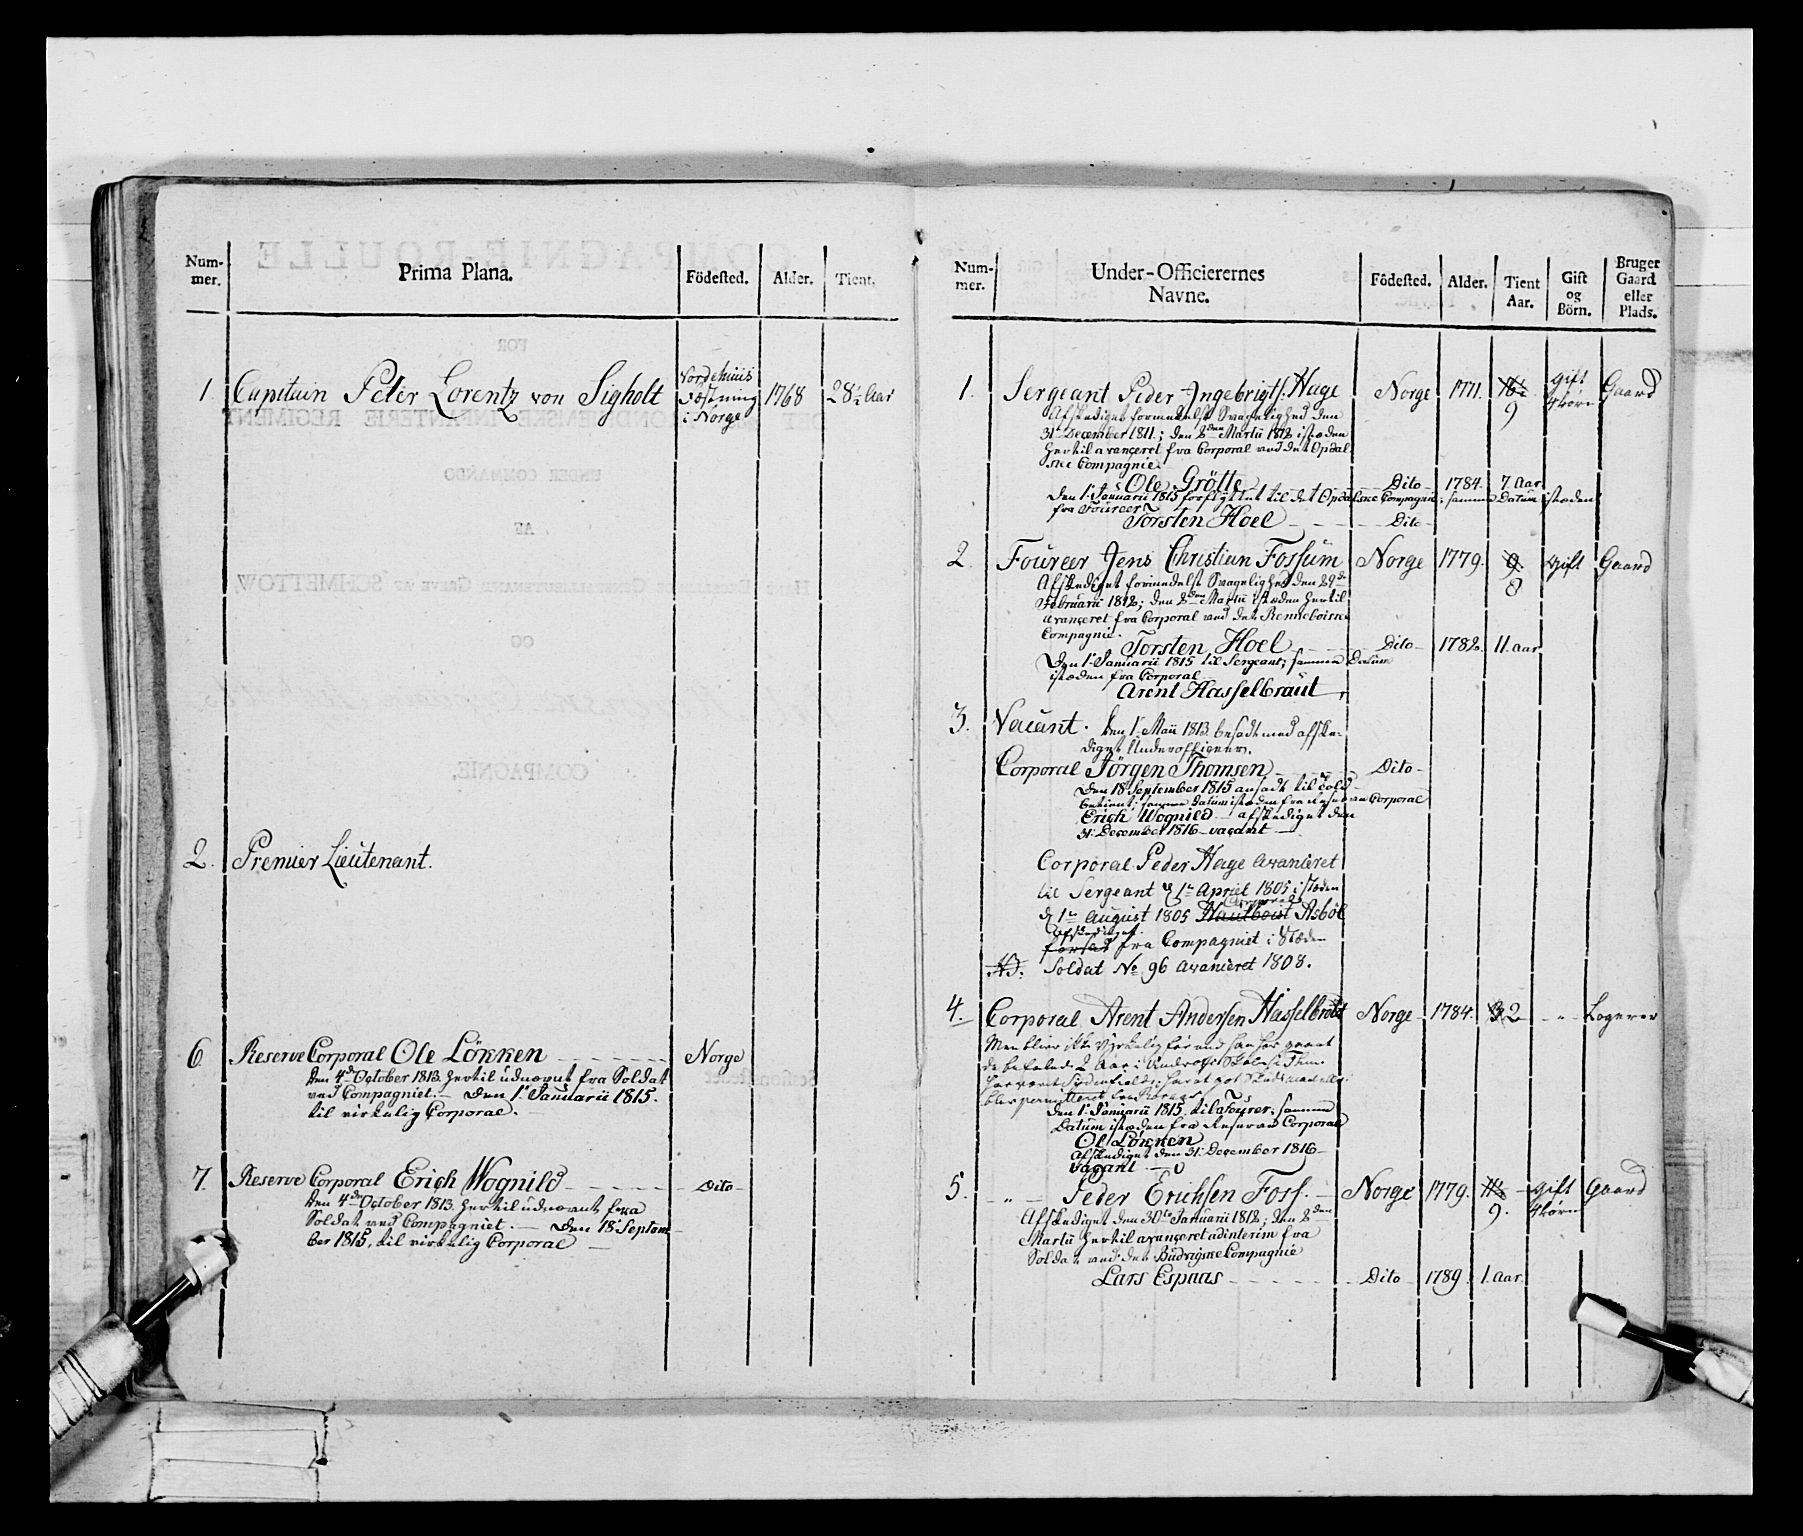 Num-mer. Prima Plana. Födested. Alder. Tient.
1. Capitain Peter Lorentz von Sigholt Vordehuus Fæstning i Norge 1768 28½ Aar
2. Premier Lieutenant.
6. Reserve Corporal Ole Lökken Norge
Den 4de October 1813 hertil udnævnt fra Soldat
ved Compagniet. — Den 1te Januarii 1815.
til virkelig Corporal.
7. Reserve Corporal Erich Wognild Dito
Den 4de October 1813 hertil udnævnt fra
Soldat ved Compagniet. — Den 18 Septem-
ber 1815, til virkelig Corporal —
Num-mer. Under-Officierernes Navne. Födested. Alder. Tient Aar. Gift og Börn. Bruger Gaard eller Plads.
1. Sergeant Peder Ingebrigts: Hage Norge 1771. 9 gift 4 börn Gaard
Afskediget formedelst Svagelighed den
31te December 1811; den 2den Martii 1812 istæden
hertil avanceret fra Corporal ved det Opdal-
ske Compagnie.
Ole Grötte Dito 1784. 7. Aar
Den 1te Januarii 1815 forflyttet til det Opdalske Compagnie; samme Datum istæden
fra Foureer
Torsten Hoel Dito
2. Foureer Jens Christian Fossum Norge 1779. 9. 8 Gift Gaard
Afskediget formedelst Svagelighed den 29de
Februarii 1812; den 2den Martii istæden hertil
avanceret fra Corporal ved det Renneboiske
Compagnie.
Torsten Hoel Dito 1782. 11. aar
Den 1te Januarii 1815 til Sergeant; samme Datum
istæden fra Corporal
Arent Hasselbraut
3. Vacant. Den 1te Maii 1813 besadt med afske-
diget Underofficeer.
Corporal Jörgen Thomsen Dito
Den 18 September 1815 ansadt til Told-
betient; samme Datum istæden fra Reserve Corporal
Erich Wognild — afskediget den
31 December 1816 — vacant —
Corporal Peder Hage avanceret
til Sergeant d 1te April 1805 i stæden
d 1te August 1805 Hautboist Corporal Asböl
forsat afskediget fra Compagniet i Stæden
No. Soldat No 96 avanceret 1808.
4. Corporal Arent Andersen Hasselbrodt Norge 1784. 2 " Logerer
Men bliver ikke Virkelig för end han har gaaet
de befalede 2 Aar i Underofs: Skole i Thm:
Den 1te Januarii 1815. til Fourer; samme
Datum istæden fra Reserve Corporal
Ol Lökken
Afskediget den 31 December 1816 —
vacant —
5. " — Peder Erichsen Foss. Norge 1779. 9. gift 4 börn Gaard
Afskediget den 30te Januarii 1812; den 2den
Martii hertil avanceret ad interim fra
Soldat ved det Budvigske Compagnie
Lars Espaas Dito 1789. 1. aar